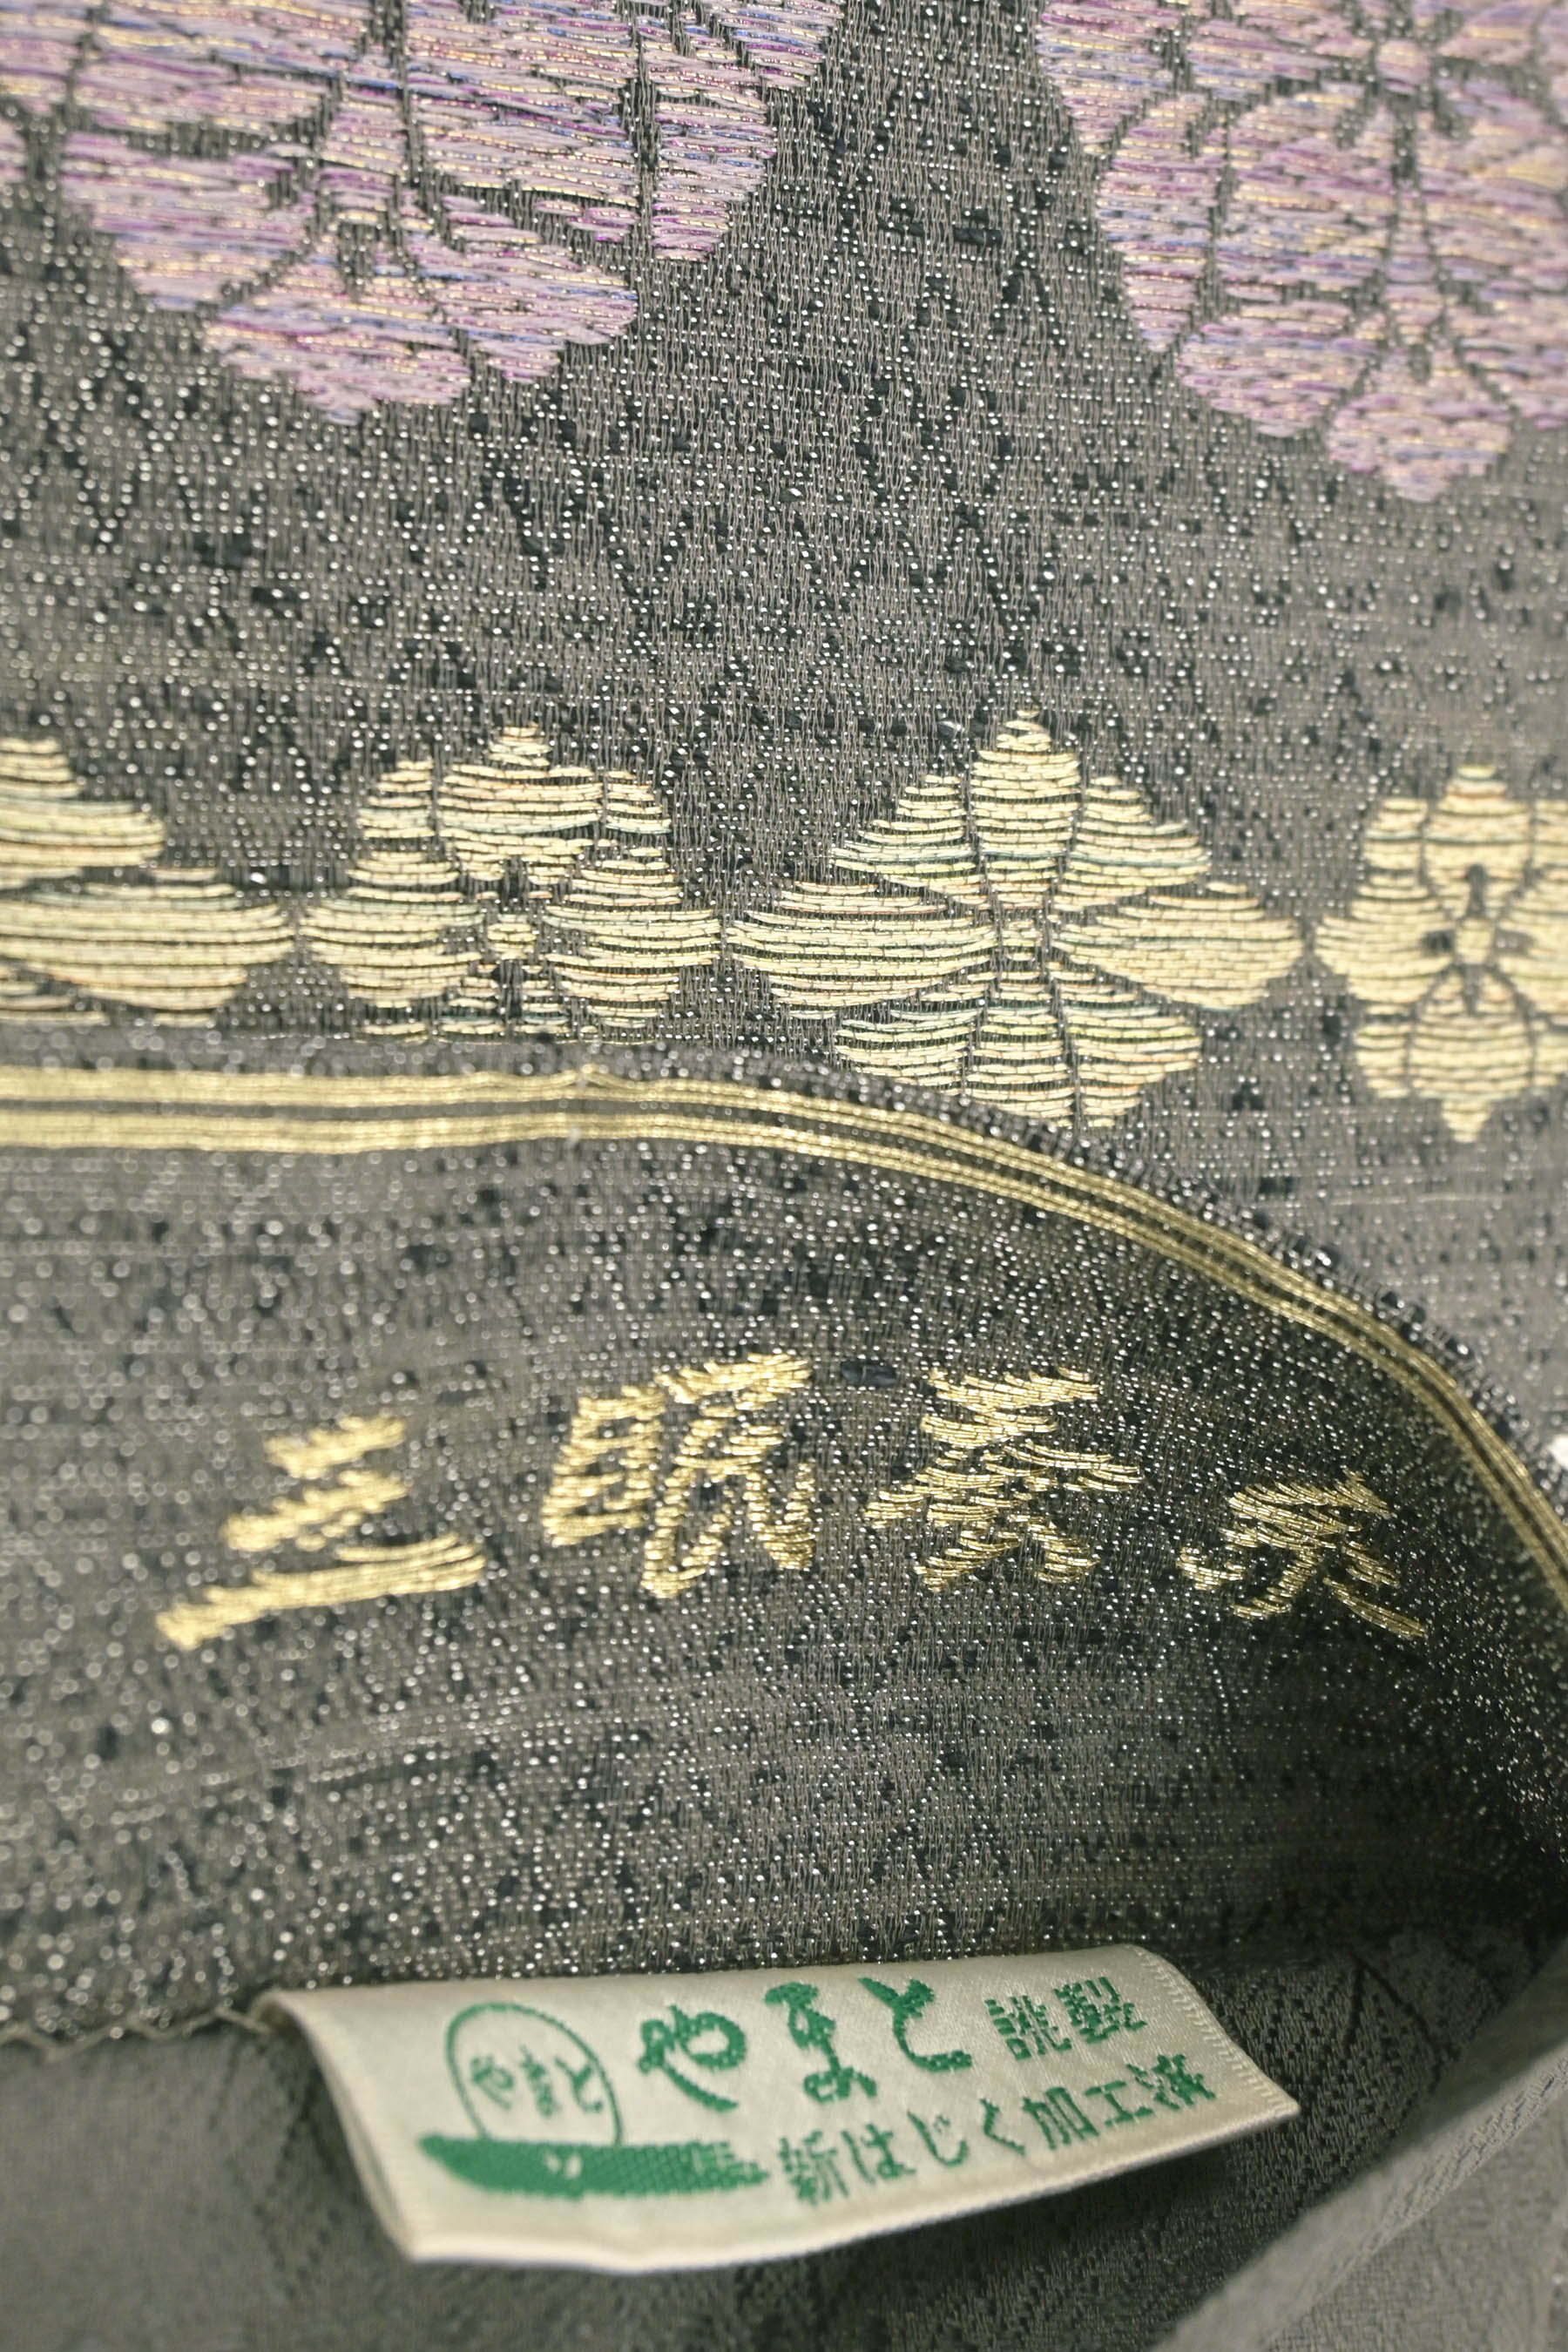 三眠蚕糸
やまと
やまと 誂製
新はじく加工済